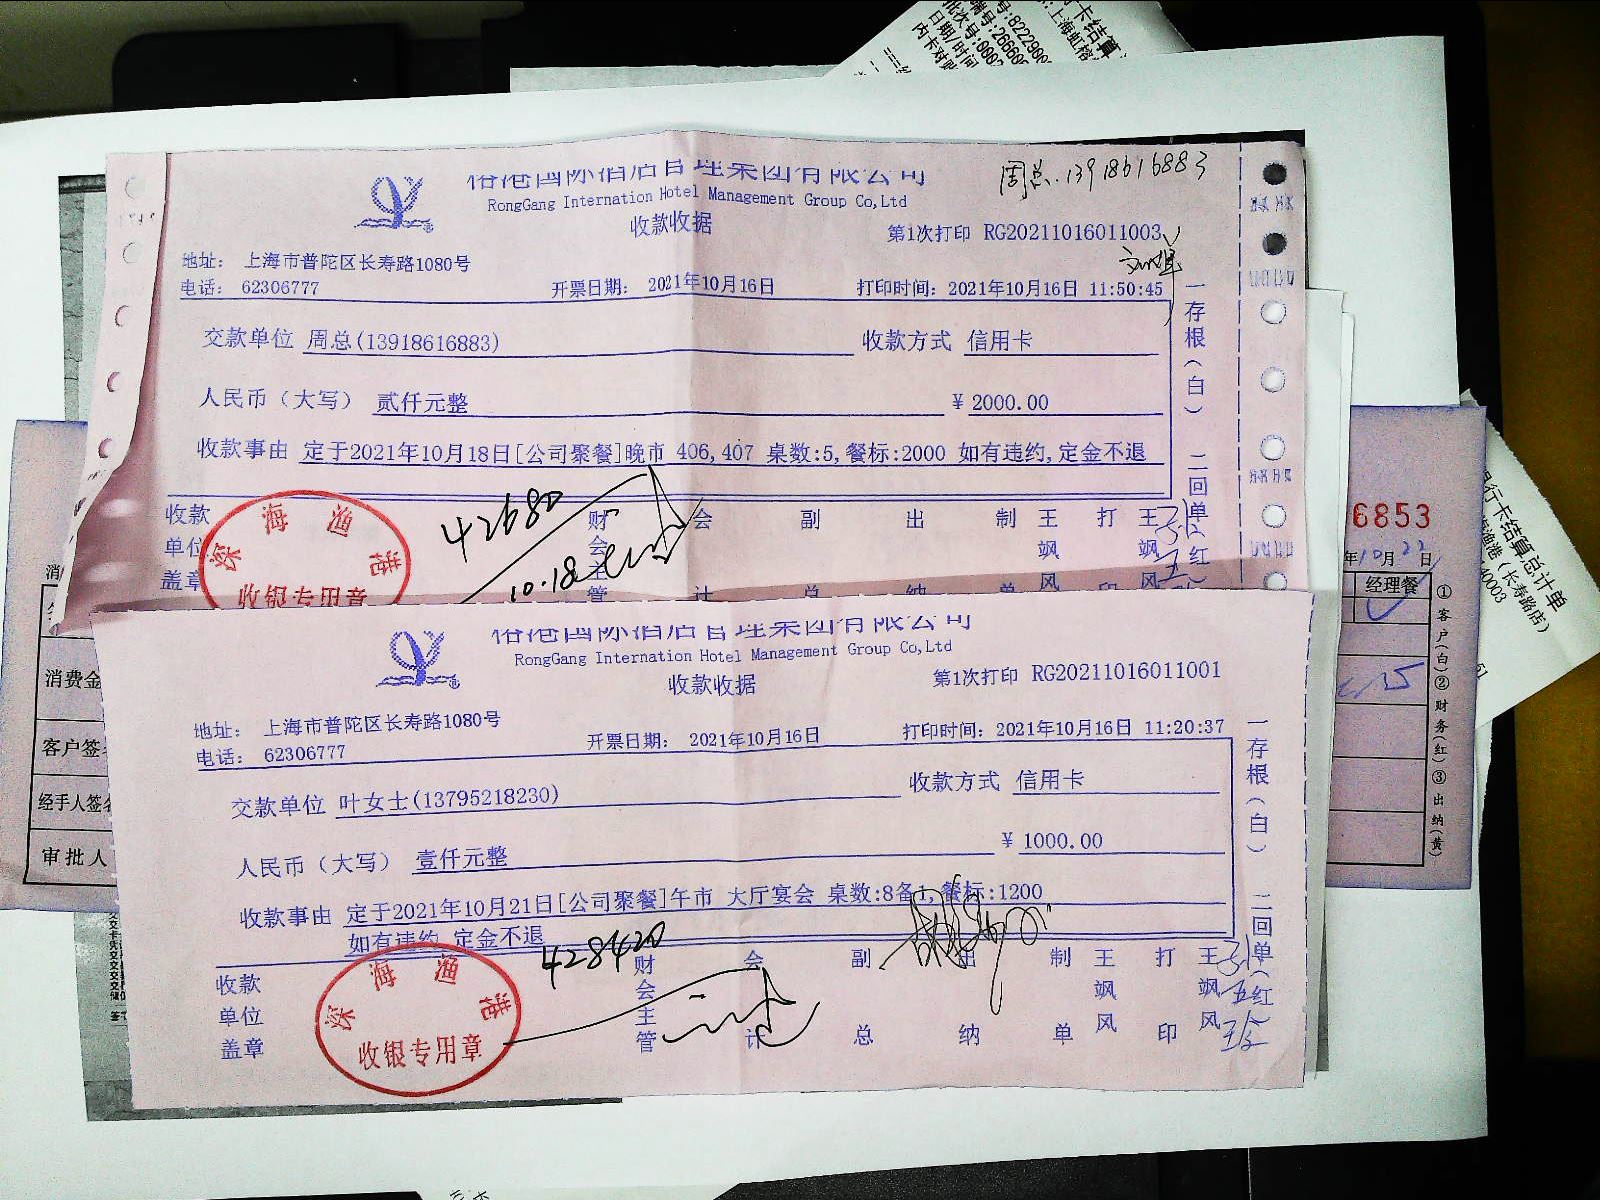 榕港国际酒店管理集团有限公司
周总.13918616883
RongGang International Hotel Management Group Co,Ltd
收款收据
第1次打印 RG20211016011003
地址: 上海市普陀区长寿路1080号
电话: 62306777
开票日期: 2021年10月16日
打印时间: 2021年10月16日 11:50:45
交款单位 周总(13918616883)
收款方式 信用卡
人民币（大写） 贰仟元整
¥ 2000.00
收款事由 定于2021年10月18日[公司聚餐]晚市 406,407 桌数:5,餐标:2000 如有违约,定金不退
一存根(白) 二回单(红)
收款单位盖章
深海渔港
收银专用章
42680
10.18
财会主管
会计
副总
出纳
制单
王飒风
打印
王飒风
榕港国际酒店管理集团有限公司
RongGang International Hotel Management Group Co,Ltd
收款收据
第1次打印 RG20211016011001
地址: 上海市普陀区长寿路1080号
电话: 62306777
开票日期: 2021年10月16日
打印时间: 2021年10月16日 11:20:37
交款单位 叶女士(13795218230)
收款方式 信用卡
人民币（大写） 壹仟元整
¥ 1000.00
收款事由 定于2021年10月21日[公司聚餐]午市 大厅宴会 桌数:8备1,餐标:1200
如有违约 定金不退
一存根(白) 二回单(红)
收款单位盖章
深海渔港
收银专用章
428420
财会主管
会计
副总
出纳
制单
王飒风
打印
王飒风
消费金
客户签
经手人签
审批人
6853
年10月22日
经理餐
①客户(白)②财务(红)③出纳(黄)
行卡结算总计单
渔港（长寿路店）
40003
卡结算
上海虹榕
号:8222900
批次号:000
日期/时间
内卡对账